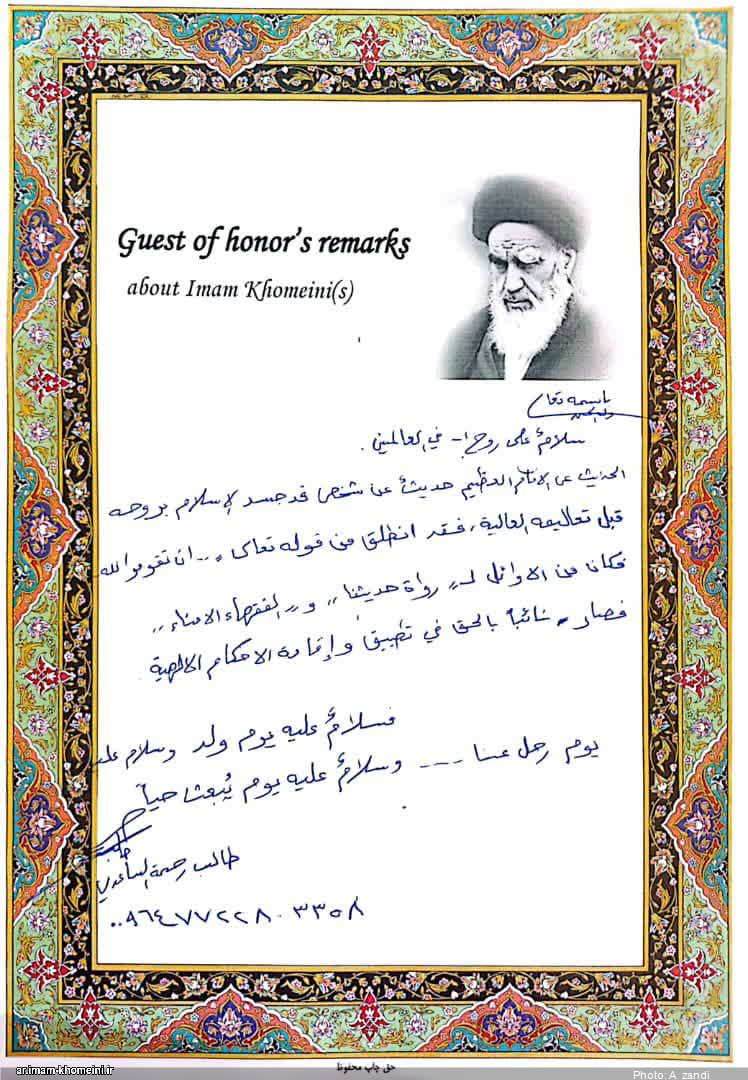 Guest of honor's remarks
about Imam Khomeini(s)
باسمه تعالى
سلامٌ على روح الله في العالمين.
الحديث عن الامام العظيم حديثٌ عن شخص قد جسد الإسلام بروحه
قبل تعاليمه العالية، فقد انطلق من قوله تعالى "...ان تقوموا لله
فكان من الاوائل لـ "رواة حديثنا" و "الفقهاء الامناء"
فصار نائباً بالحق في تطبيق وإقامة الاحكام الالهية
فسلامٌ عليه يوم ولد وسلام عليه
يوم رحل عنا .... وسلامٌ عليه يوم يُبعث حياً
طالب رحمة الساعدي
٠٠٩٦٤٧٧٢٢٨٠٣٣٥٨
حق چاپ محفوظ
animam-khomeini.ir
Photo: A. zandi